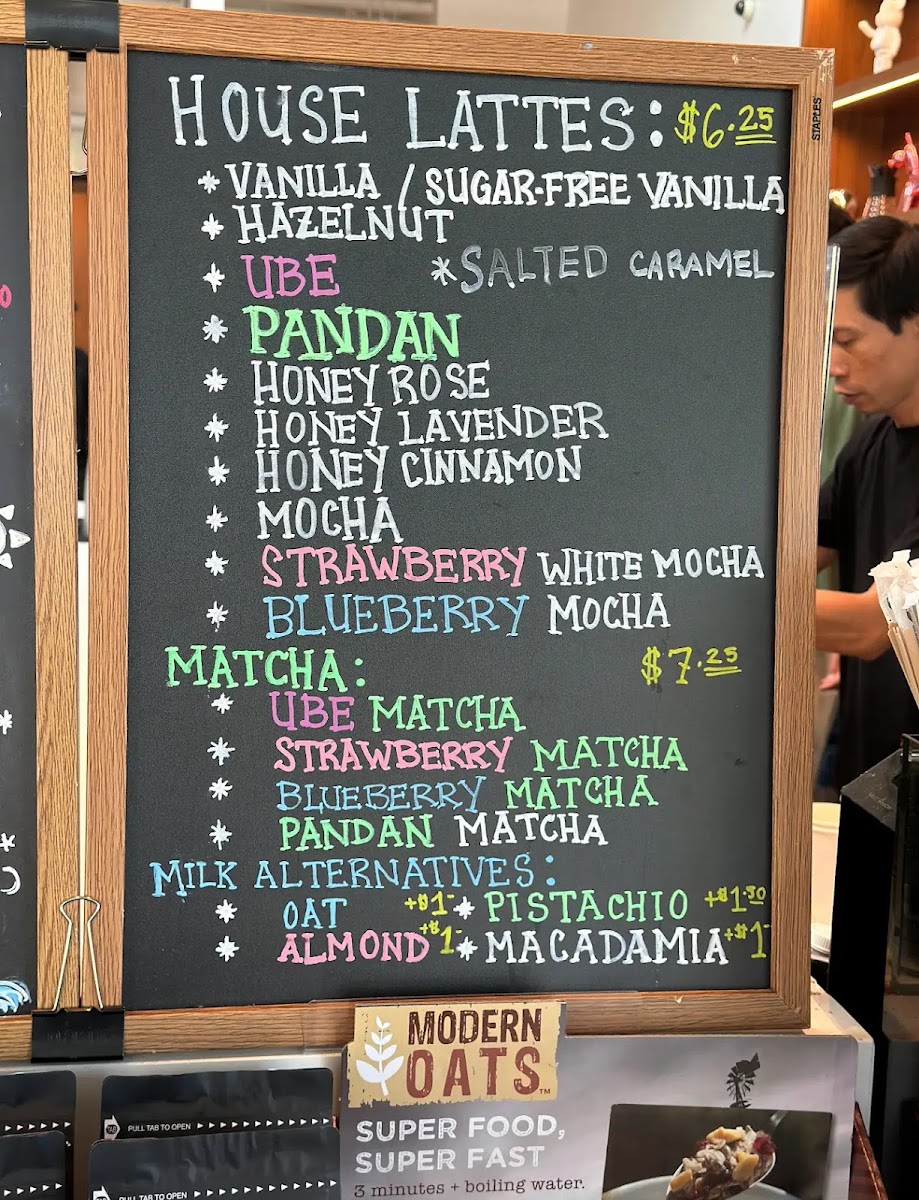 HOUSE LATTES: $6.25
* VANILLA / SUGAR-FREE VANILLA
* HAZELNUT
* UBE *SALTED CARAMEL
* PANDAN
* HONEY ROSE
* HONEY LAVENDER
* HONEY CINNAMON
* MOCHA
* STRAWBERRY WHITE MOCHA
* BLUEBERRY MOCHA
MATCHA: $7.25
* UBE MATCHA
* STRAWBERRY MATCHA
* BLUEBERRY MATCHA
* PANDAN MATCHA
MILK ALTERNATIVES:
* OAT +$1- * PISTACHIO +$1.50
* ALMOND +$1- * MACADAMIA +$1-
STAPLES
MODERN
OATS™
SUPER FOOD,
SUPER FAST
3 minutes + boiling water.
PULL TAB TO OPEN
PULL TAB TO OPEN